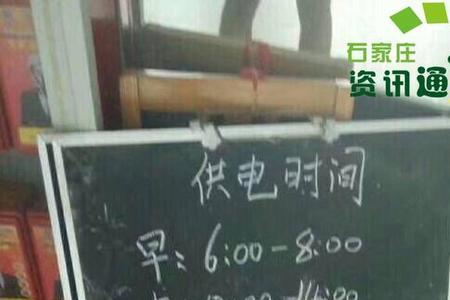 石家庄
资讯通
供电时间
早：6:00-8:00